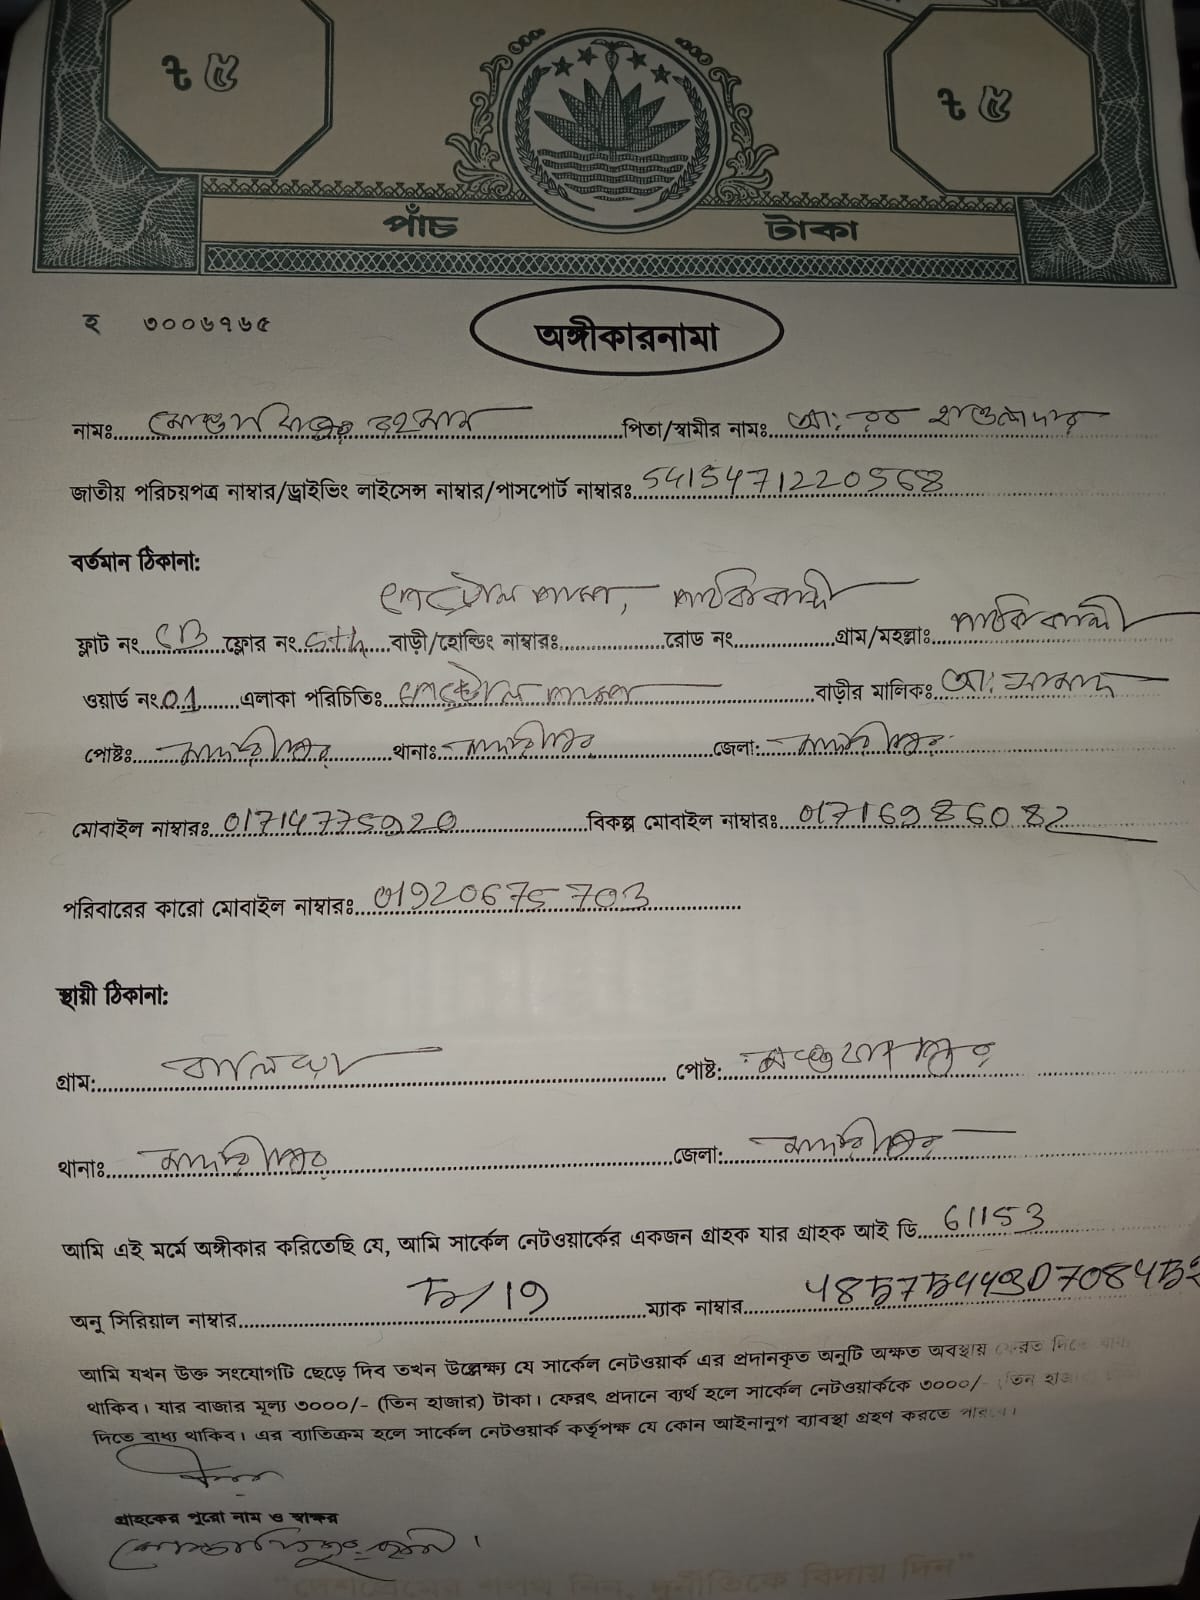 ৳ ৫ ৳ ৫
পাঁচ টাকা
হ ৩০০৬৭৬৫
অঙ্গীকারনামা
নামঃ মোস্তাফিজুর রহমান পিতা/স্বামীর নামঃ আঃ রব হাওলাদার
জাতীয় পরিচয়পত্র নাম্বার/ড্রাইভিং লাইসেন্স নাম্বার/পাসপোর্ট নাম্বারঃ 5415471220568
বর্তমান ঠিকানা:
পাঠককান্দী
ফ্লাট নং ফ্লোর নং 5th বাড়ী/হোল্ডিং নাম্বারঃ রোড নং গ্রাম/মহল্লাঃ পাঠককান্দী
ওয়ার্ড নং 01 এলাকা পরিচিতিঃ বাড়ীর মালিকঃ আঃ
পোষ্টঃ মাদারীপুর থানাঃ মাদারীপুর জেলা: মাদারীপুর
মোবাইল নাম্বারঃ 01714775920 বিকল্প মোবাইল নাম্বারঃ 01716986082
পরিবারের কারো মোবাইল নাম্বারঃ 01920675703
স্থায়ী ঠিকানা:
গ্রাম: পোষ্ট:
থানাঃ মাদারীপুর জেলা: মাদারীপুর
আমি এই মর্মে অঙ্গীকার করিতেছি যে, আমি সার্কেল নেটওয়ার্কের একজন গ্রাহক যার গ্রাহক আই ডি 61153
অনু সিরিয়াল নাম্বার ম্যাক নাম্বার
আমি যখন উক্ত সংযোগটি ছেড়ে দিব তখন উল্লেক্ষ্য যে সার্কেল নেটওয়ার্ক এর প্রদানকৃত অনুটি অক্ষত অবস্থায় ফেরত দিতে
থাকিব। যার বাজার মূল্য ৩০০০/- (তিন হাজার) টাকা। ফেরৎ প্রদানে ব্যর্থ হলে সার্কেল নেটওয়ার্ককে ৩০০০/- (তিন
দিতে বাধ্য থাকিব। এর ব্যাতিক্রম হলে সার্কেল নেটওয়ার্ক কর্তৃপক্ষ যে কোন আইনানুগ ব্যাবস্থা গ্রহণ করতে
গ্রাহকের পুরো নাম ও স্বাক্ষর
"দেশপ্রেমের শপথ নিন, দুর্নীতিকে বিদায় দিন"